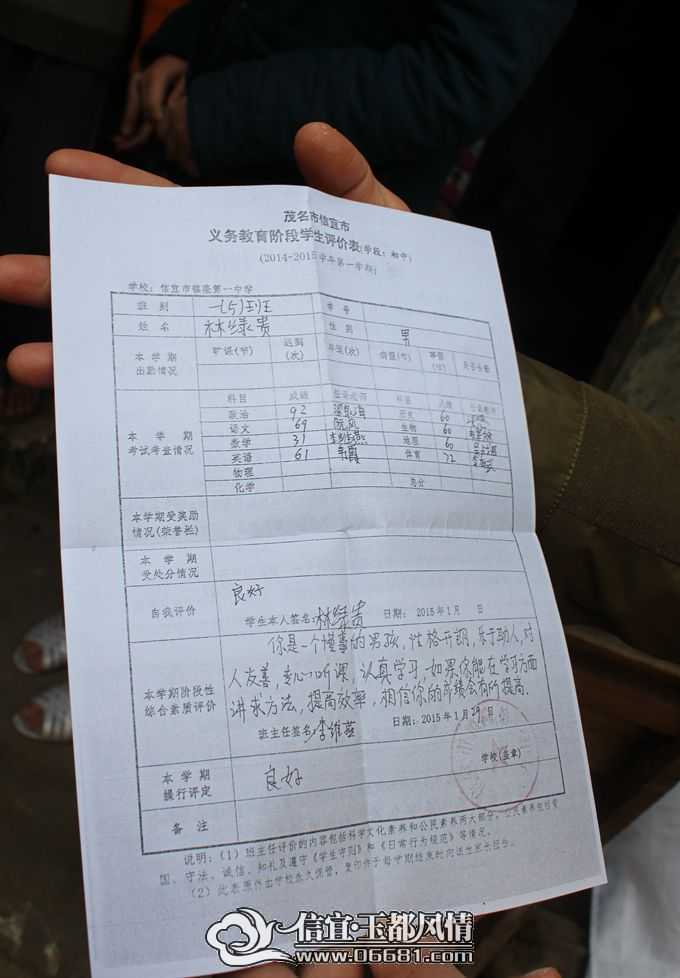 茂名市信宜市
义务教育阶段学生评价表(学段：初中)
(2014-2015学年第一学期)
学校：信宜市镇隆第一中学
班 别 一(5)班 学 号
姓 名 林绿贵 性 别 男
本 学 期 出勤情况 旷课(节) 迟到(次) 早退(次) 病假(节) 事假(节) 是否全勤
本 学 期 考试考查情况
科目 成绩 任课老师 科目 成绩 任课老师
政治 92 历史 60
语文 69 阮凤 生物 60
数学 31 地理 60
英语 61 韦霞 体育 72
物理
化学 总分
本学期受奖励情况(荣誉栏)
本 学 期 受处分情况
自我评价 良好
学生本人签名：林绿贵 日期：2015年1月 日
本学期阶段性综合素质评价
你是一个懂事的男孩，性格开朗，乐于助人，对
人友善，专心听课，认真学习，如果你能在学习方面
讲求方法，提高效率，相信你的成绩会有所提高.
班主任签名：李维燕 日期：2015年1月29日
学校(盖章)
本 学 期 操行评定 良好
备 注
说明：(1) 班主任评价的内容包括科学文化素养和公民素养两大部分，公民素养包括爱
国、守法、诚信、知礼及遵守《学生守则》和《日常行为规范》等情况。
(2) 此表原件由学校永久保管，复印件于每学期结束时向学生家长报告。
信宜·玉都风情
www.06681.com